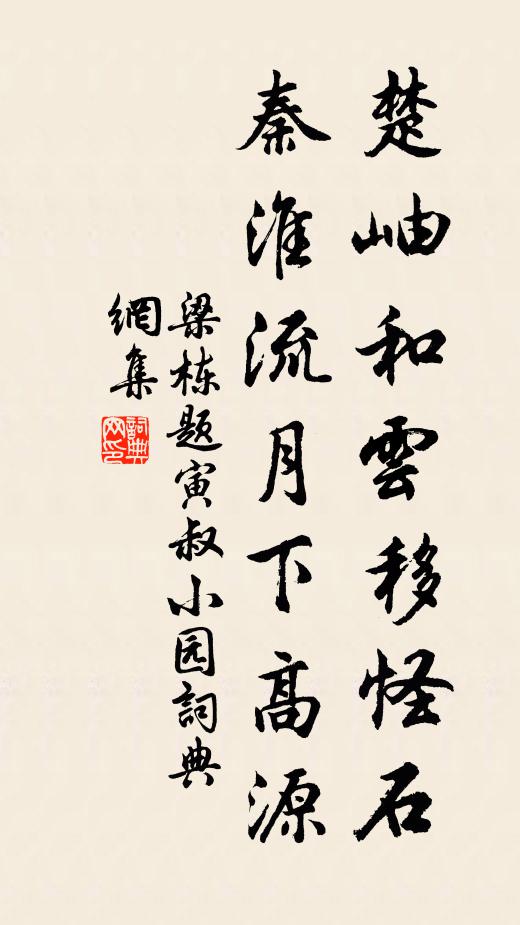 楚岫和雲移怪石
秦淮流月下高源
梁栋题寅叔小园詞典
網集
詞典
网印